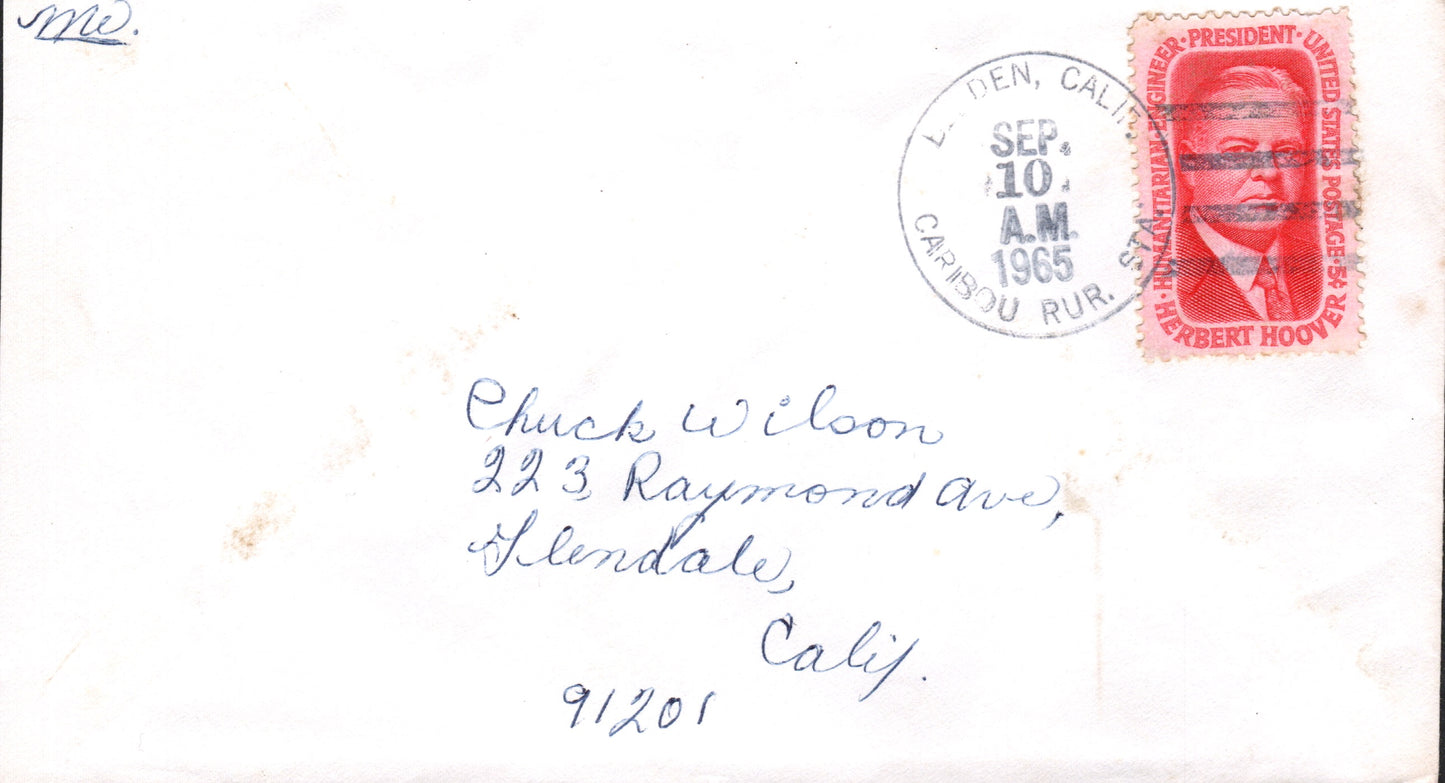 Me.
HUMANITARIAN · ENGINEER · PRESIDENT · UNITED STATES POSTAGE · 5¢
HERBERT HOOVER
CALIF.
SEP.
10
A.M.
1965
CARIBOU RUR. STA.
Chuck Wilson
223 Raymond Ave,
Glendale,
Calif.
91201